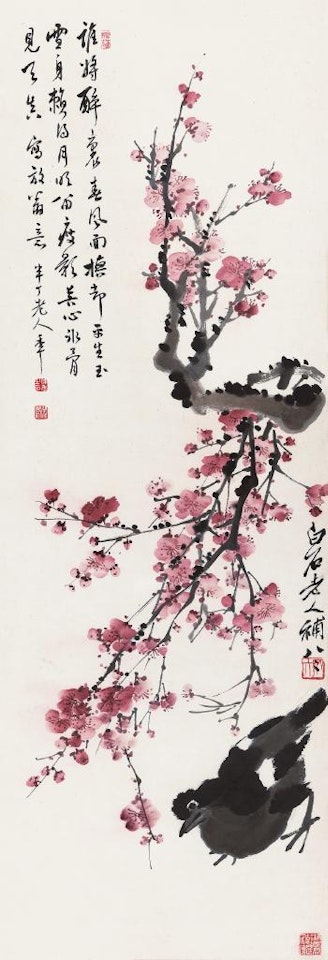 誰將醉裏春風面換却平生玉
雪身賴得月明留瘦影苦心氷骨
見天真 寫放翁意 半丁老人年
白石老人補八